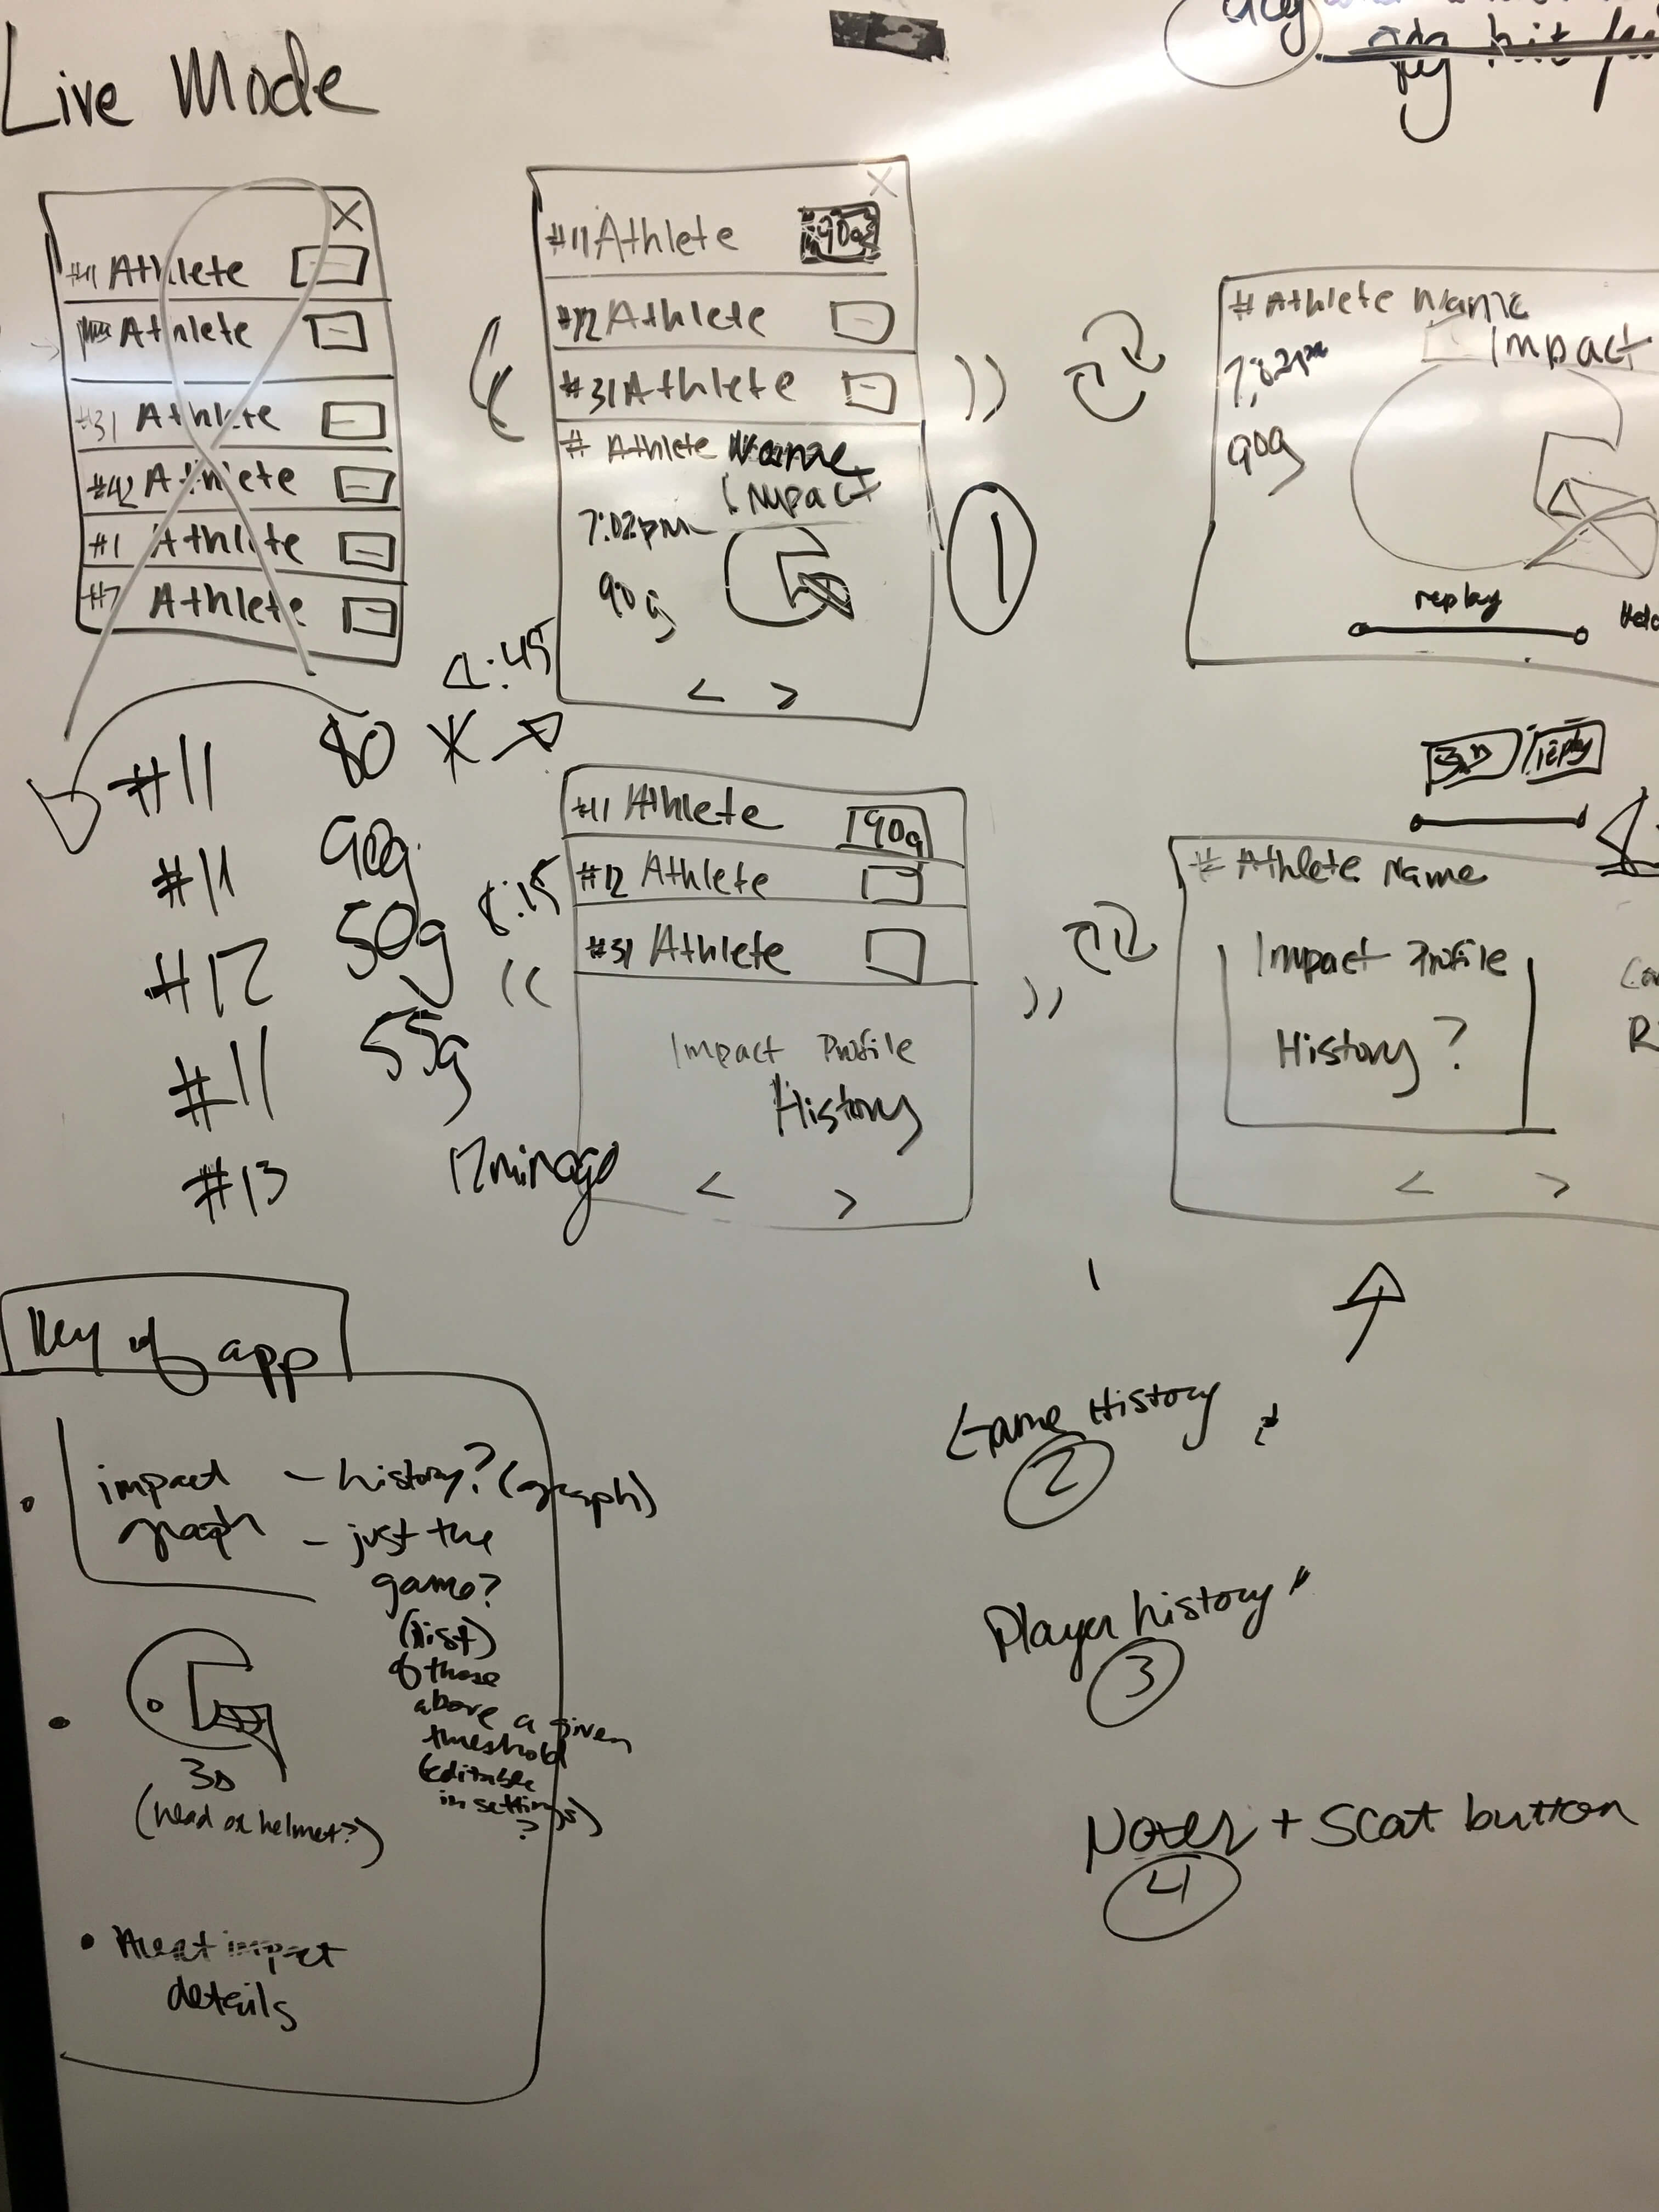 Live Mode
X
#11 Athlete
Athlete
#31 Athlete
#42 Athlete
#1 Athlete
#7 Athlete
X
#11 Athlete 90g
#12 Athlete
#31 Athlete
# Athlete Name
Impact
7:02pm
90g
< >
1
# Athlete Name
Impact
7:02pm
90g
replay
:45
#11 80
#11 90g
#12 50g
#11 55g
#13 12min ago
:15
#11 Athlete 90g
#12 Athlete
#31 Athlete
Impact Profile
History
< >
3D reply
# Athlete Name
Impact Profile
History?
< >
R
Key of app
impact graph
- history? (graph)
- just the
game?
(list)
of those
above a given
threshold
(editable
in settings)
?
3D
(head or helmet?)
impact
details
Game History
2
Player history
3
Notes + Scat button
4